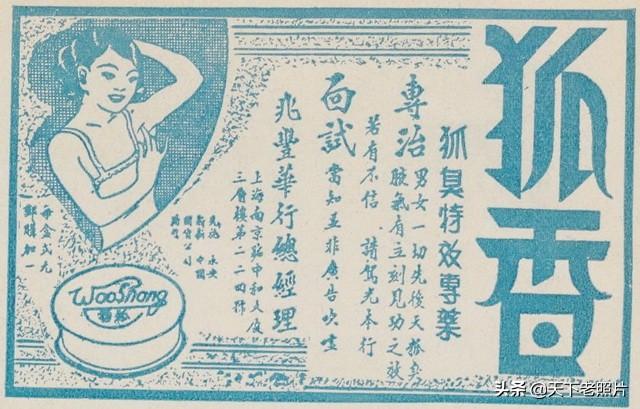 狐香
狐臭特效專藥
專治男女一切先後天狐臭
腋氣有立刻見功之效
若有不信 請駕光本行
面試當知並非廣告吹噓
兆豐華行總經理
上海南京路中和大廈
三層樓第二二四號
先施 永安
新新 中國
國貨公司
每盒式元
郵購加一
WooShang
香狐
头条 @天下老照片